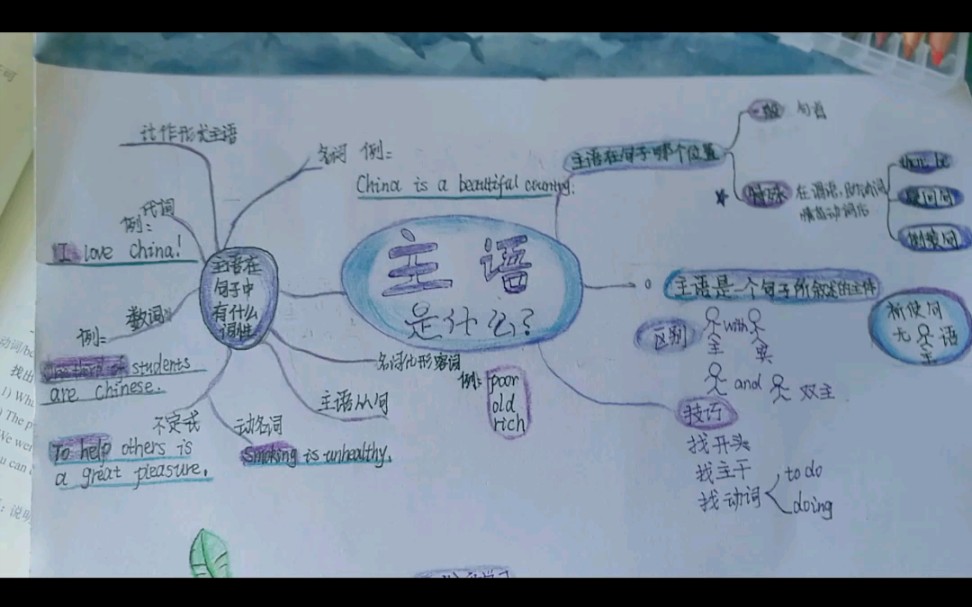 主语
是什么?
主语在句子哪个位置
一般
句首
特殊
在谓语、助动词
情态动词后
疑问句
倒装句
主语是一个句子所叙述的主体
祈使句
无主语
区别
with
主 宾
and 双主
技巧
找开头
找主干
找动词
to do
doing
主语在
句子中
有什么
词性
it作形式主语
名词 例:
China is a beautiful country.
代词
例:
I love China!
数词
例:
students
are Chinese.
不定式
To help others is
a great pleasure.
动名词
Smoking is unhealthy.
主语从句
名词化形容词
例:
poor
old
rich